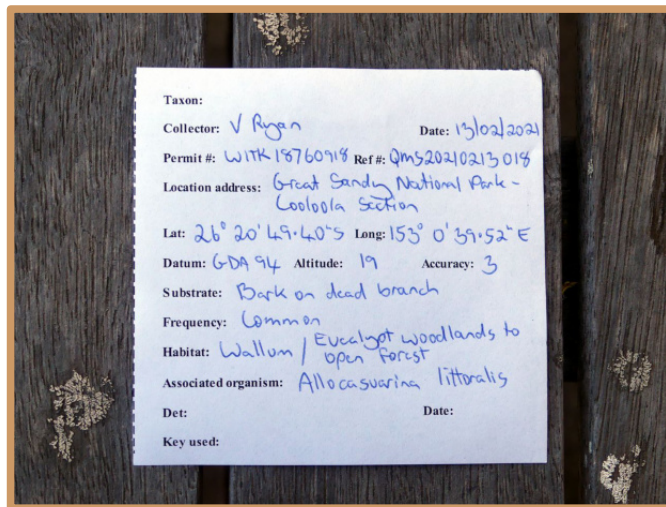 Taxon:
Collector: V Ryan Date: 13/02/2021
Permit #: WITK18760918 Ref #: QMS20210213018
Location address: Great Sandy National Park -
Cooloola Section
Lat: 26° 20' 49.40"S Long: 153° 0' 39.52" E
Datum: GDA 94 Altitude: 19 Accuracy: 3
Substrate: Bark on dead branch
Frequency: Common
Habitat: Wallum / Eucalypt woodlands to
open forest
Associated organism: Allocasuarina littoralis
Det: Date:
Key used: